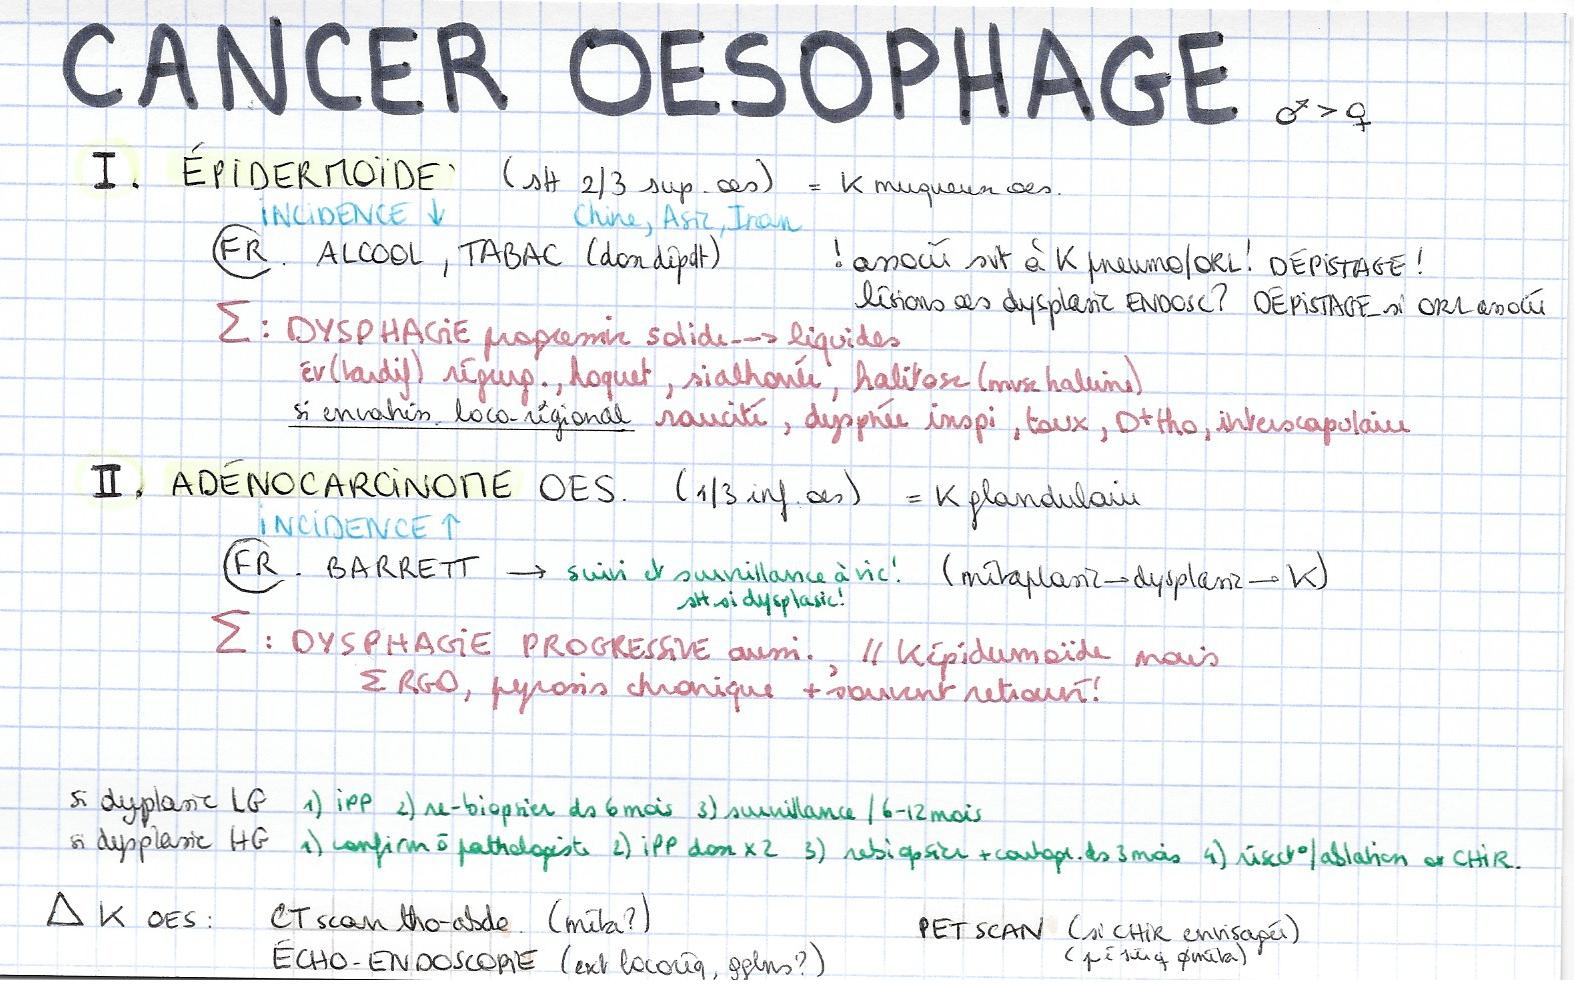 CANCER OESOPHAGE ♂ > ♀
I. ÉPIDERMOÏDE (stt 2/3 sup. oes) = K muqueux oes.
INCIDENCE ↓ Chine, Asie, Iran
FR. ALCOOL, TABAC (dose dépdt) ! associé svt à K pneumo/ORL! DÉPISTAGE!
lésions oes dysplasie ENDOSC? DÉPISTAGE si ORL associé
Σ: DYSPHAGIE progressive solide --> liquides
Ev (tardif) régurg., hoquet, sialhorrée, halitose (mvse haleine)
si envahis. loco-régional raucité, dyspnée inspi, toux, D+ tho, interscapulaire
II. ADÉNOCARCINOME OES. (1/3 inf. oes) = K glandulaire
INCIDENCE ↑
FR. BARRETT → suivi et surveillance à vie! (métaplasie → dysplasie → K)
stt si dysplasie!
Σ: DYSPHAGIE PROGRESSIVE aussi., // K épidermoïde mais
Σ RGO, pyrosis chronique + souvent retrouvé!
si dyplasie LG 1) IPP 2) re-biopsier ds 6 mois 3) surveillance / 6-12 mois
si dysplasie HG 1) confirm ō pathologiste 2) IPP dose x2 3) rebiopsier + cartogr. ds 3 mois 4) résect°/ablation or CHIR.
Δ K OES: CT scan tho-abdo (méta?) PET SCAN (si CHIR envisagée)
ÉCHO-ENDOSCOPIE (ext locorég, gglns?) ø méta)